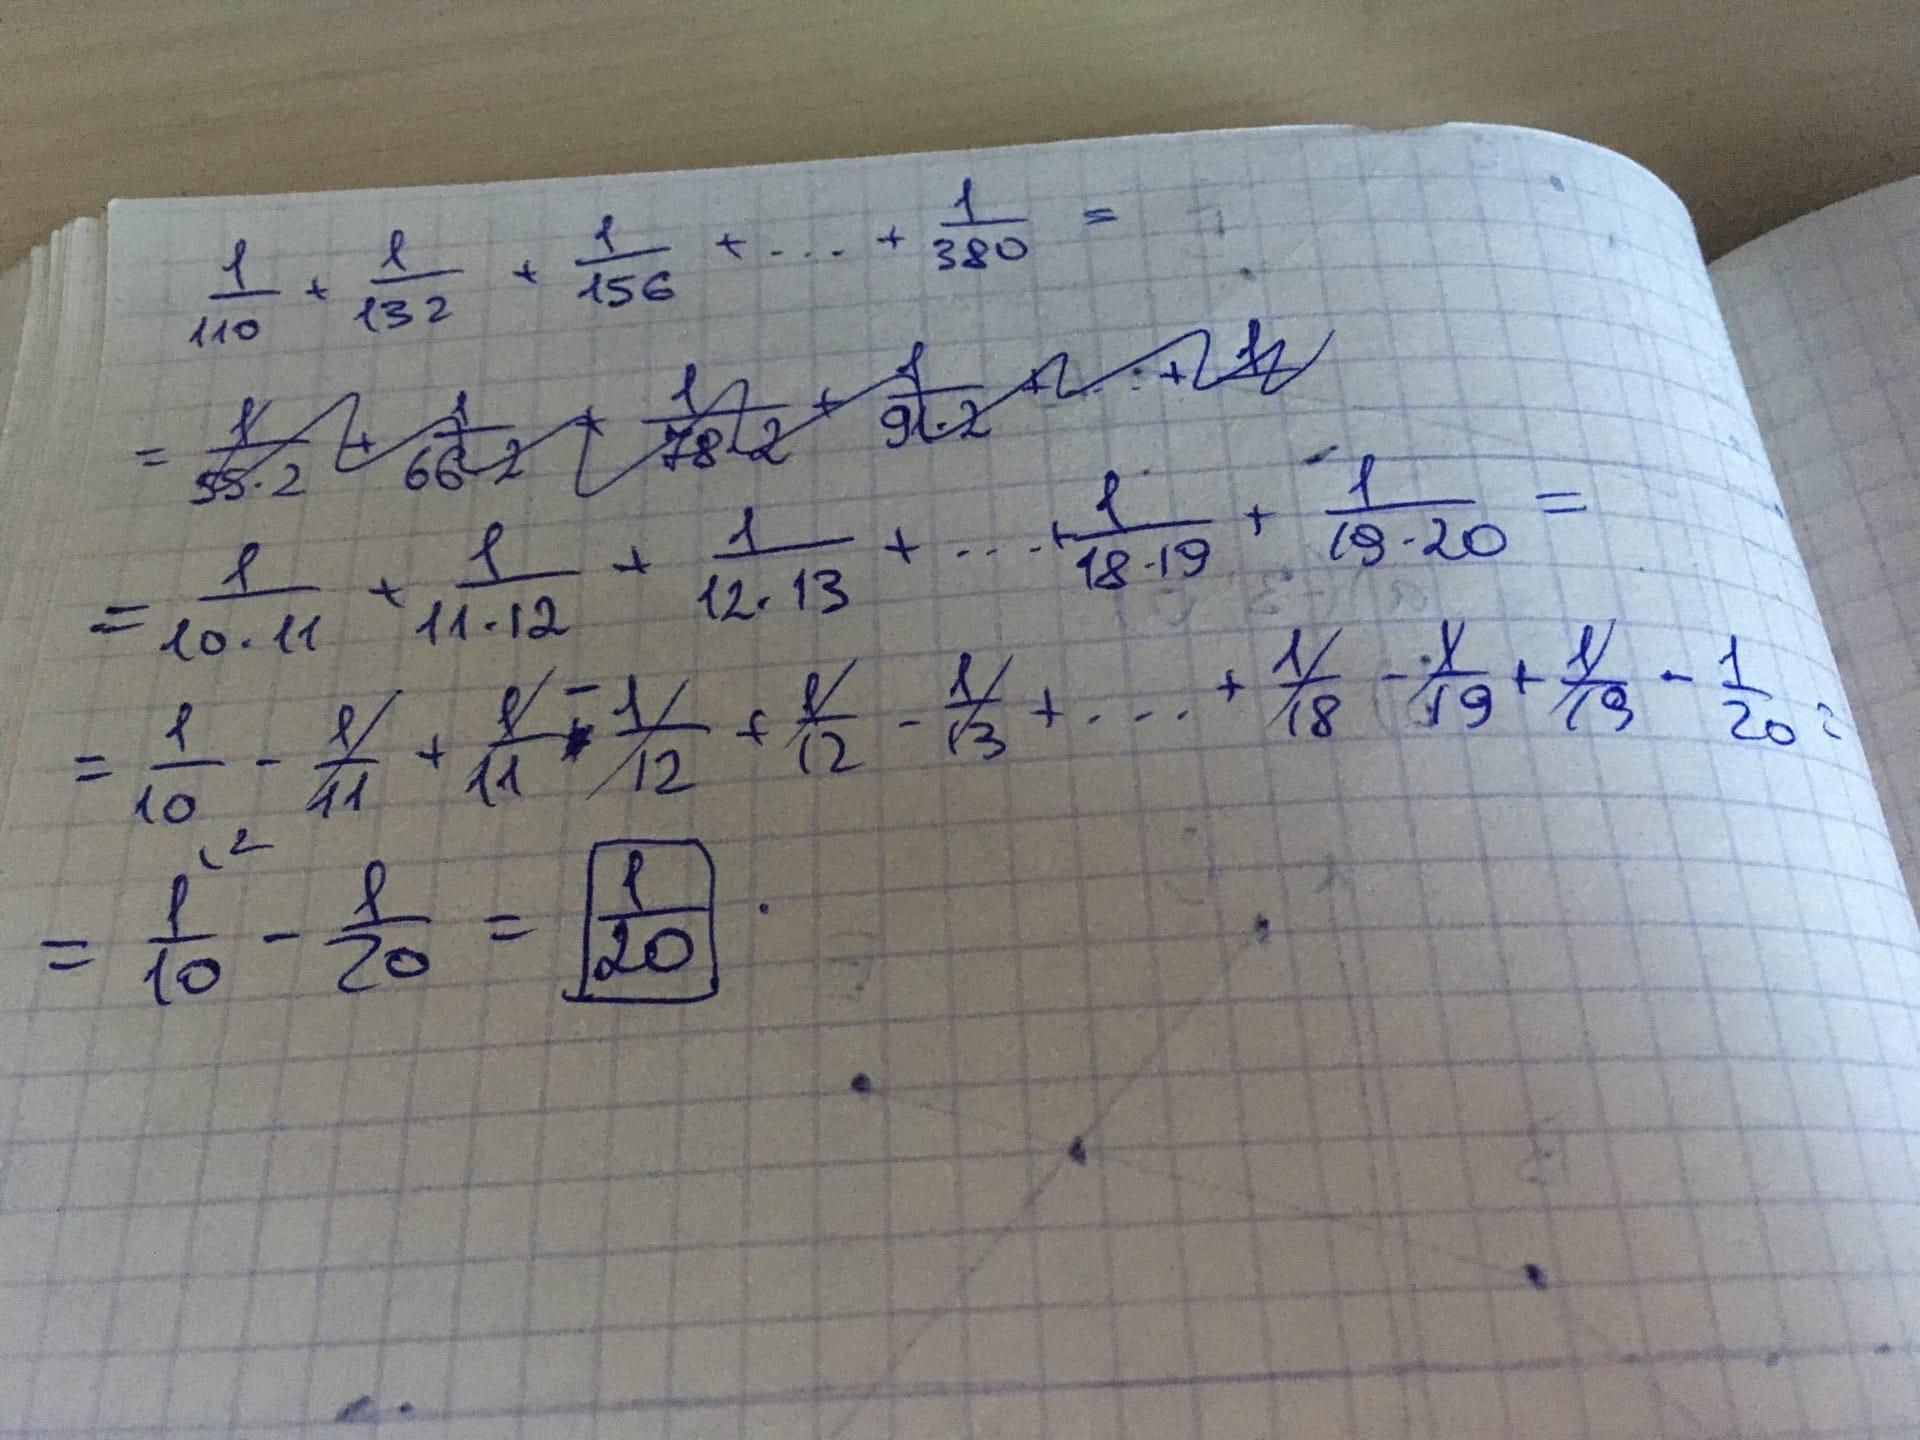 1/110 + 1/132 + 1/156 + .... + 1/380 =
= 1/55·2 + 1/66·2 + 1/78·2 + 1/91·2 + ... + 1
= 1/10·11 + 1/11·12 + 1/12·13 + ... + 1/18·19 + 1/19·20 =
= 1/10 - 1/11 + 1/11 - 1/12 + 1/12 - 1/13 + .... + 1/18 - 1/19 + 1/19 - 1/20 =
= 1/10 (2 - 1/20 = 1/20 .